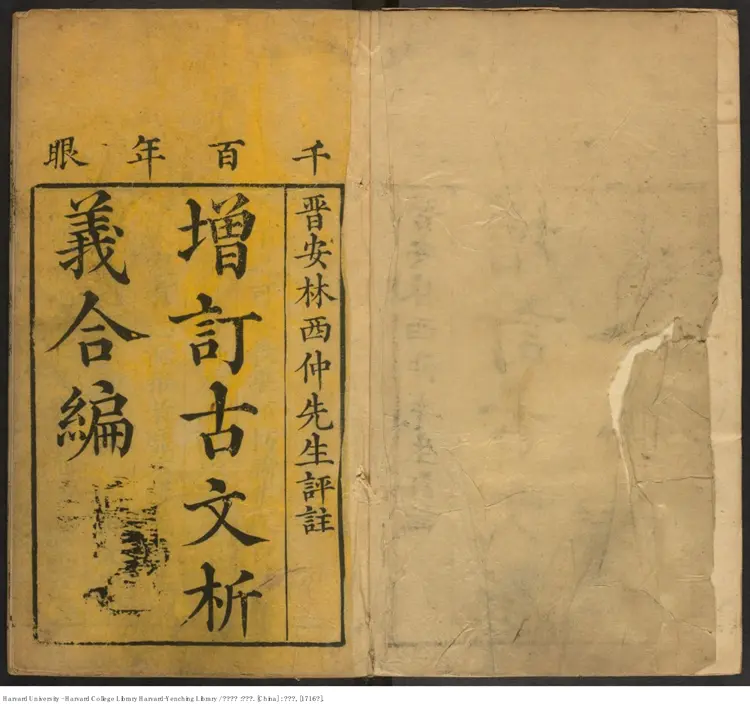 千百年眼
晋安林西仲先生評註
増訂古文析
義合編
Harvard University - Harvard College Library Harvard-Yenching Library / ???? : ???. [China] : ???, [1716?].